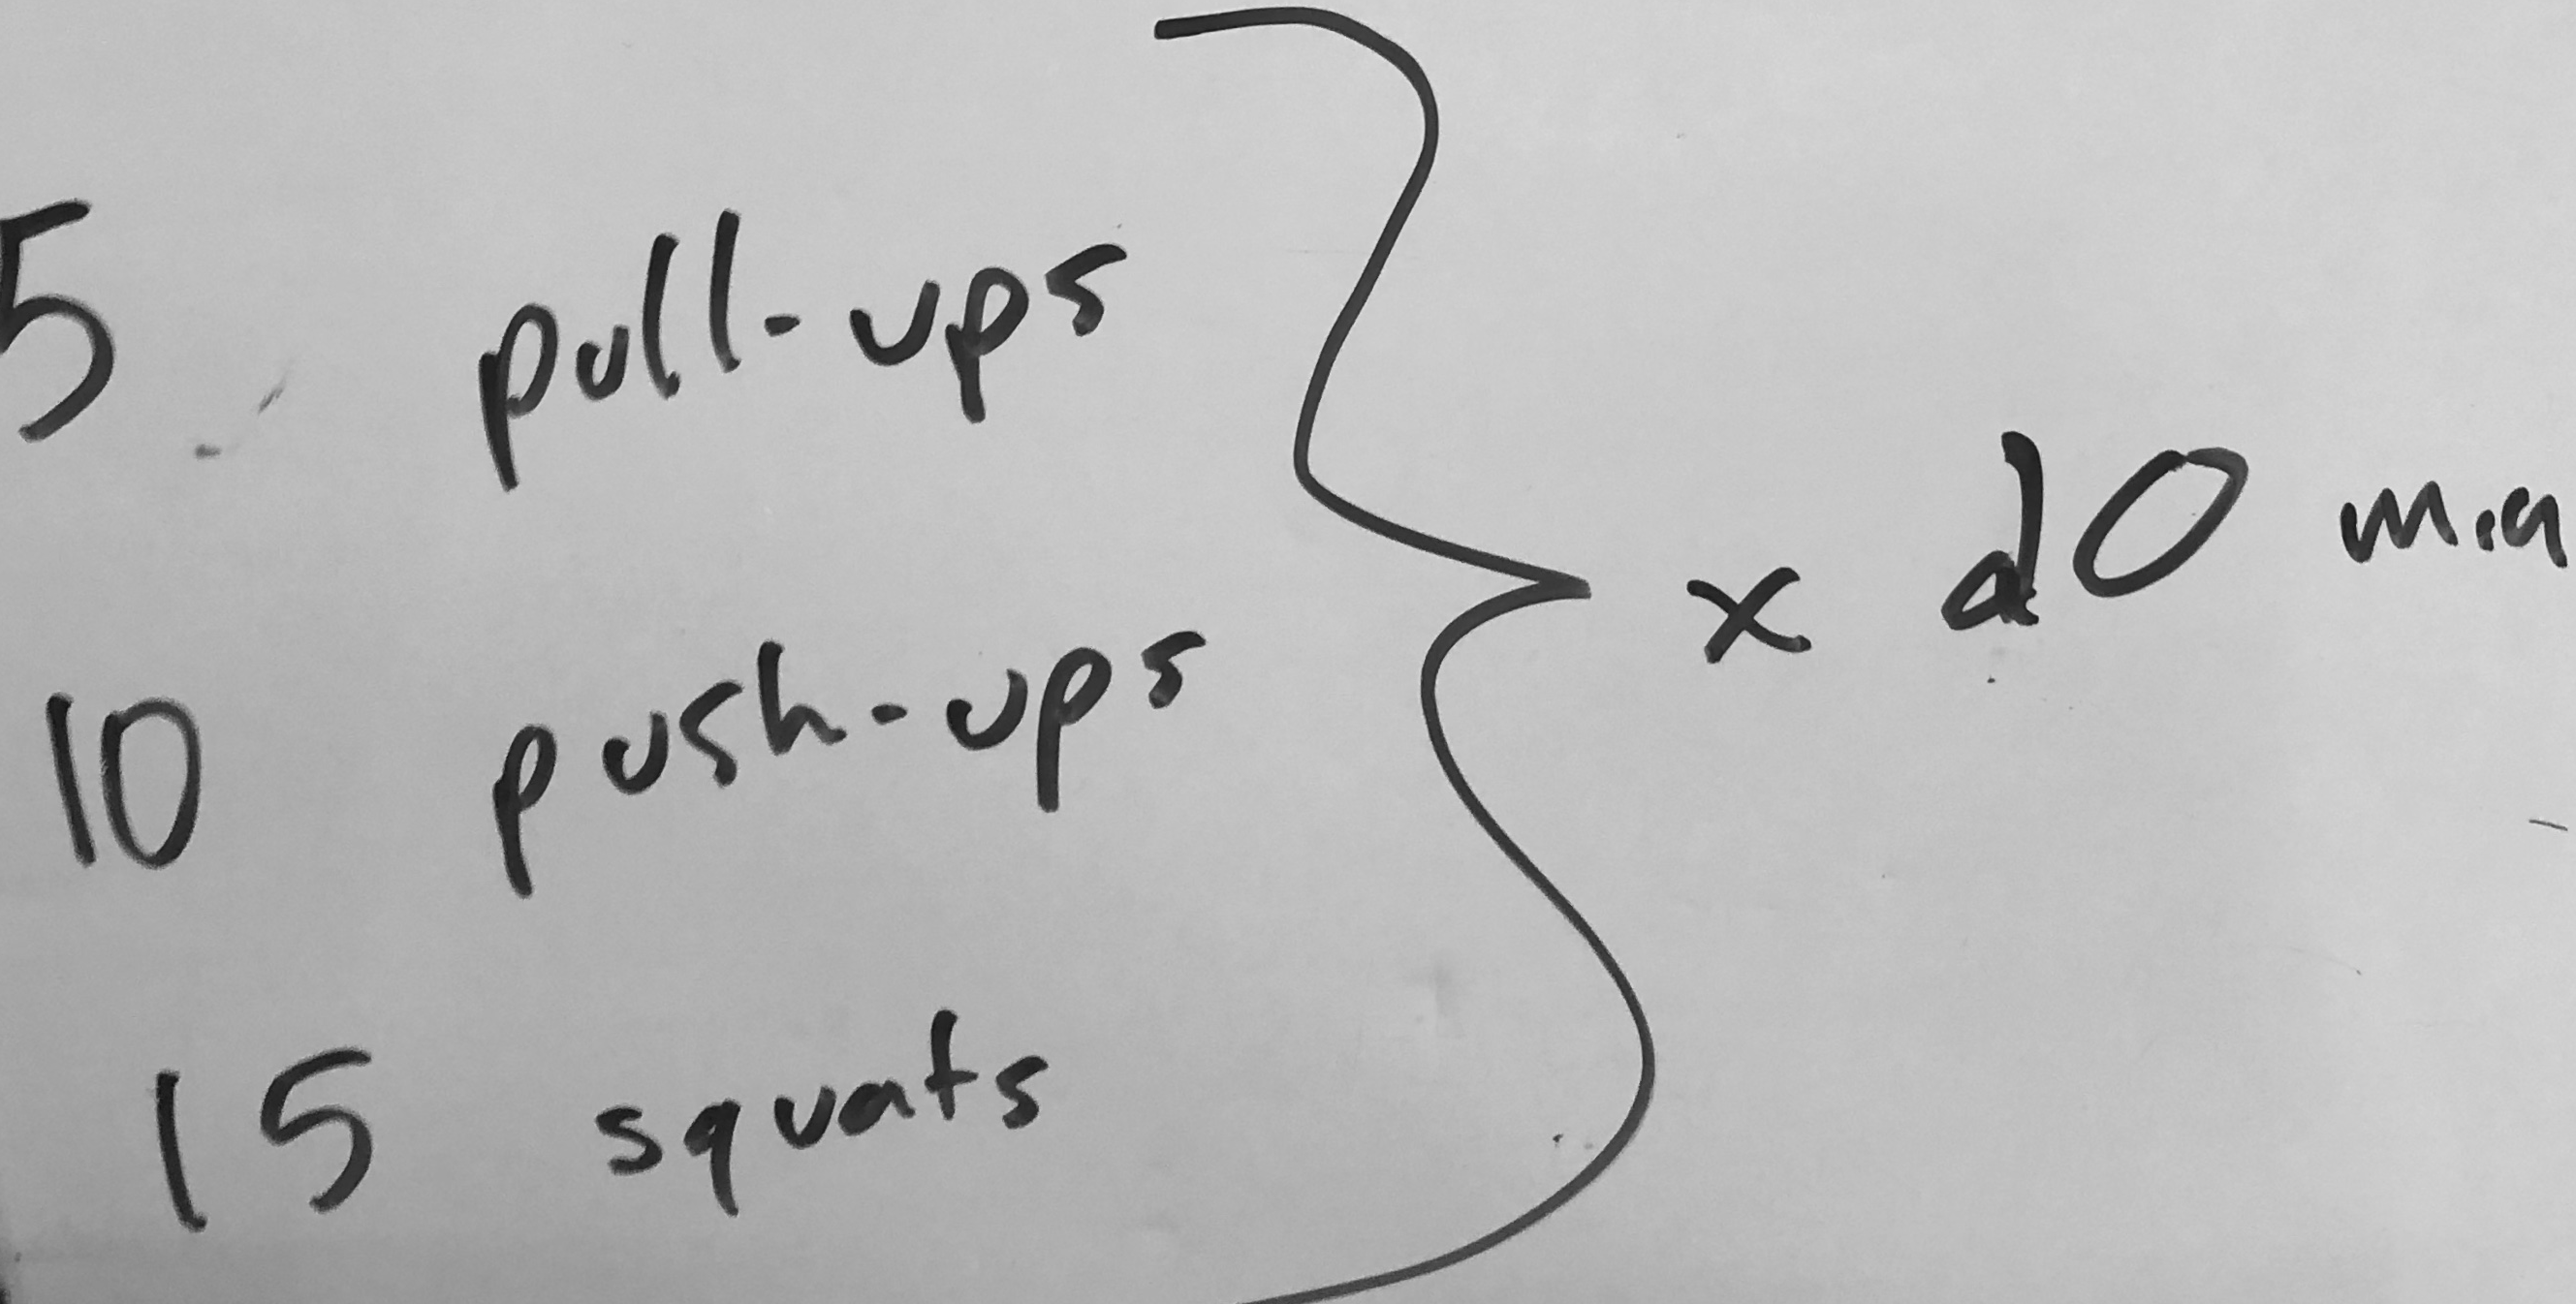 5 pull-ups
10 push-ups
15 squats
x 20 min